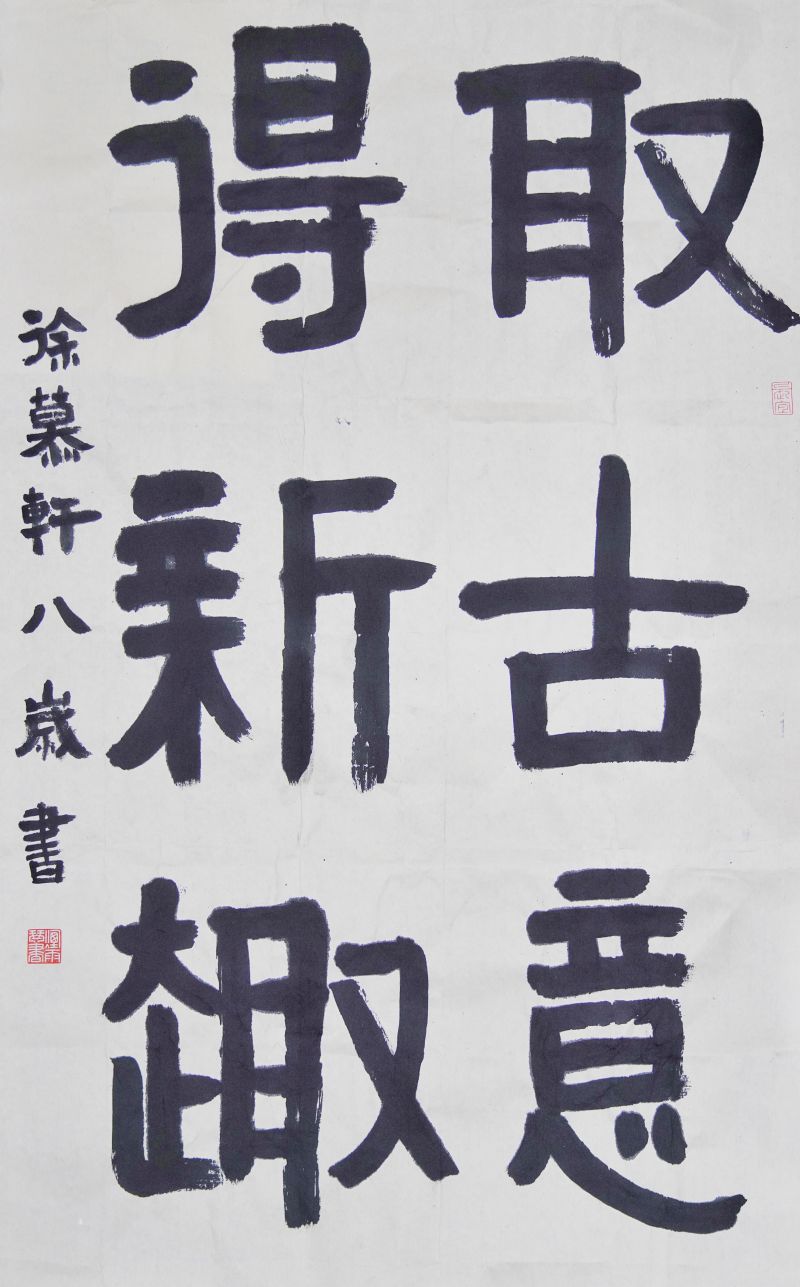 取古意
得新趣
徐慕軒八歲書